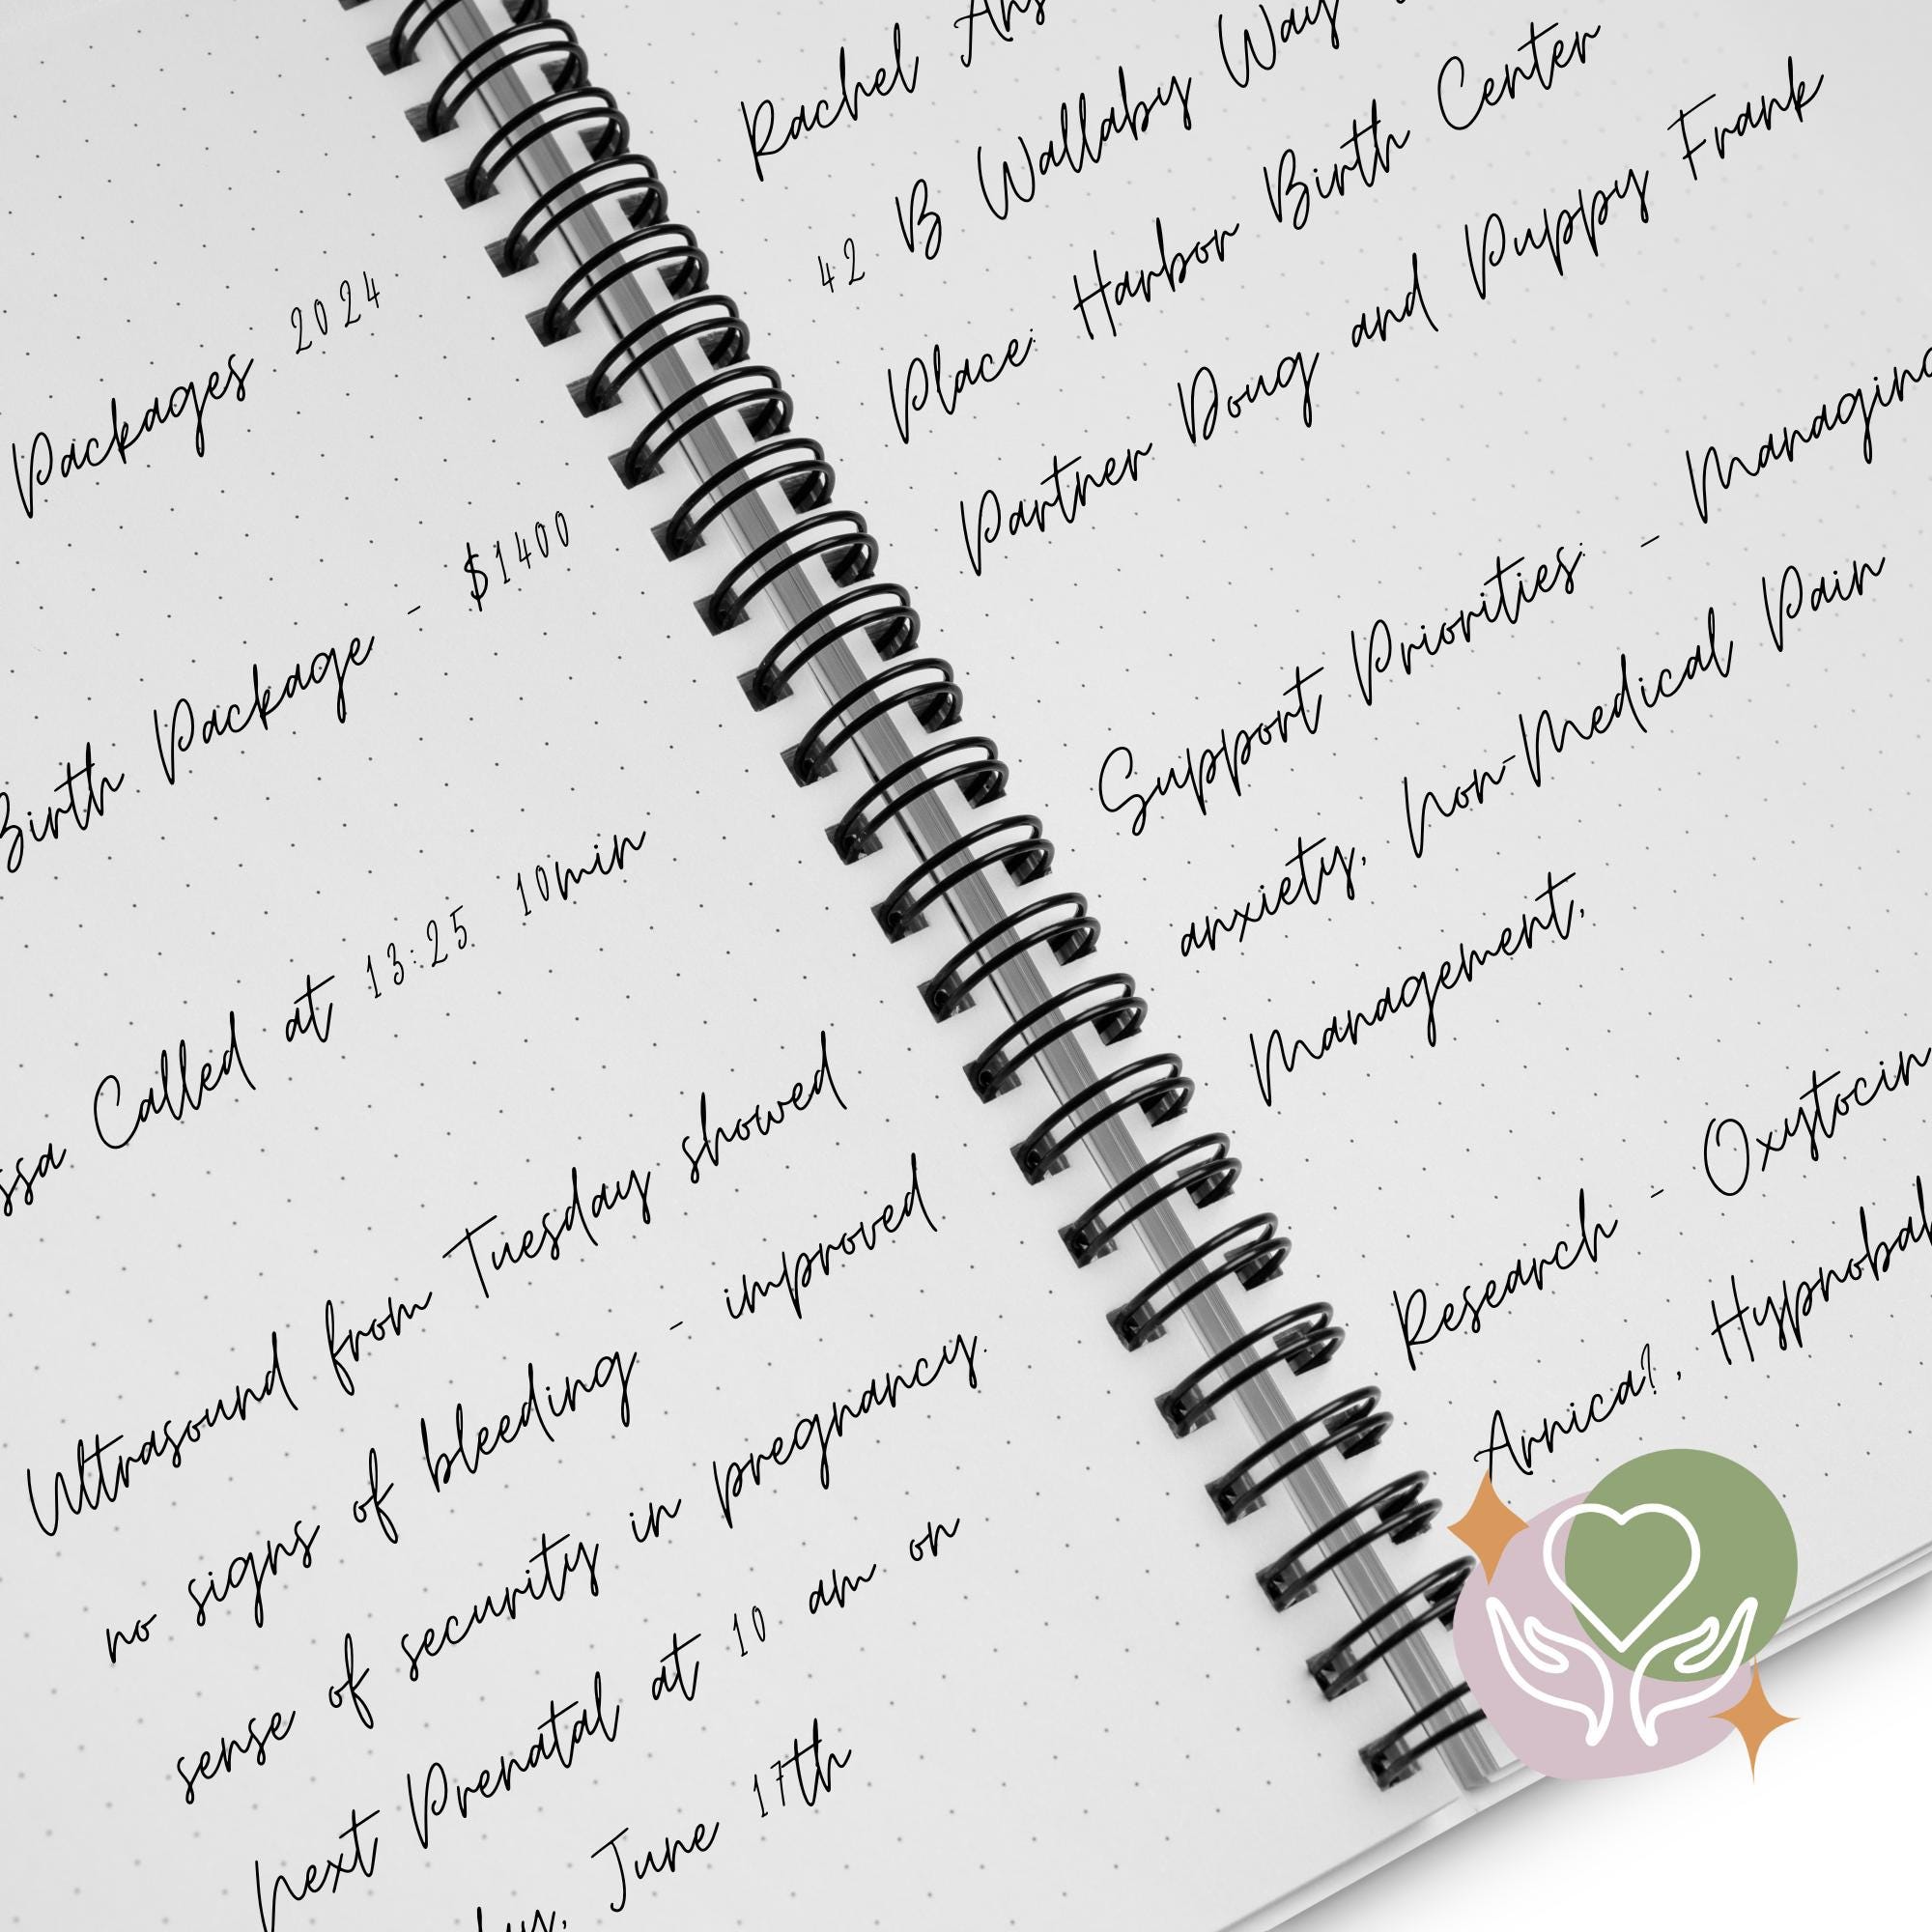 Packages 2024
Birth Package - $1400
Called at 13:25 10min
Ultrasound from Tuesday showed
no signs of bleeding - improved
sense of security in pregnancy.
Next Prenatal at 10 am on
June 17th
Rachel
42 B Wallaby Way
Place: Harbor Birth Center
Partner Doug and Puppy Frank
Support Priorities: - Managing
anxiety, Non-Medical Pain
Management,
Research - Oxytocin
Arnica?,